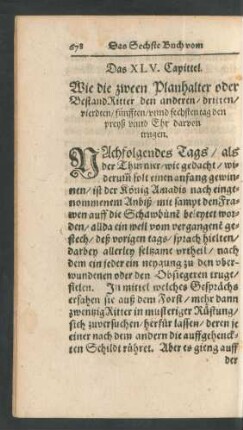 678 Das Sechste Buch vom
Das XLV. Capittel.
Wie die zween Planhalter oder
BestandRitter den anderen / dritten /
vierdten / fünfften / vnnd sechsten tag den
preyß vnnd Ehr darvon
trugen.
NAchfolgendes Tags / als
der Thurnier / wie gedacht / wi-
derum̃ solt einen anfang gewin-
nen / ist der König Amadis nach einge-
nommenem Anbiß / mit sampt den Fra-
wen auff die Schawbüne beleytet wor-
den / allda ein weil vom vergangenẽ ge-
stech / deß vorigen tags / sprach hielten /
darbey allerley seltzame vrtheil / nach
dem ein jeder ein neygung zu den vber-
wundenen oder den Obsiegeren truge /
fielen. In mittel welches Gesprächs
ersahen sie auß dem Forst / mehr dann
zwentzig Ritter in musteriger Rüstung /
sich zuversuchen / herfür lassen / deren je
einer nach dem andern die auffgehenck-
ten Schildt rühret. Aber es gieng auff
der